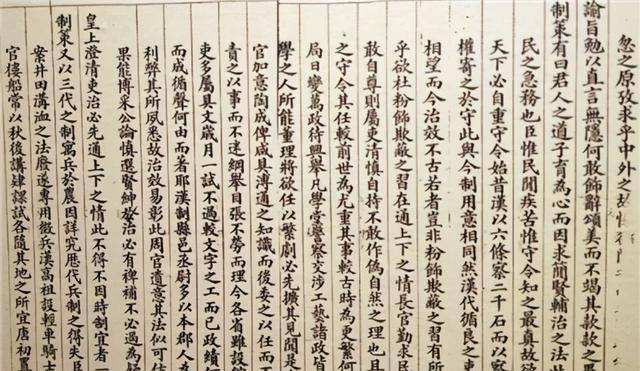 忽之原孜求乎中外之故
諭旨勉以直言無隱何敢飾辭頌美而不竭其款款之
制策有曰君人之道子育為心而因求簡賢輔治之法
民之急務也臣惟民間疾苦惟守令知之最真故欲
天下必自重守令始昔漢以六條察二千石而以察
權寄之於守此與今制用意相同然漢代循良之吏
相望而今治效不古若者豈非粉飾欺蔽之習有所
乎欲杜粉飾欺蔽之習在通上下之情長官勤求民
敢自尊則屬吏清慎自持不敢作偽自然之理也且
之守令其任較前世為尤重其事較古時為更繁何
局日變萬政待興舉凡學堂警察交涉工藝諸政皆
學之人所能董理將欲任以繁劇必先擴其見聞是
官加意陶成俾咸具溥通之知識而後委之以任而
責之以事而不迷綱舉目張不勞而理今各省雖設
吏多屬具文歲月一試不過較文字之工而已政績
而成循聲何由而著耶漢制縣邑丞尉多以本郡人
利弊其所夙悉故治效易彰此周官遺意其法似可
果能博采公論慎選賢紳於治必有裨補不必過為
皇上澄清吏治必先通上下之情此不得不因時制宜者
制策又以三代之制寓兵於農因詳究歷代兵制之得失臣
案井田溝洫之法廢遂專用徵兵漢高祖設輕車騎士
官樓船常以秋後講肄課試各隨其地之所宜唐初置